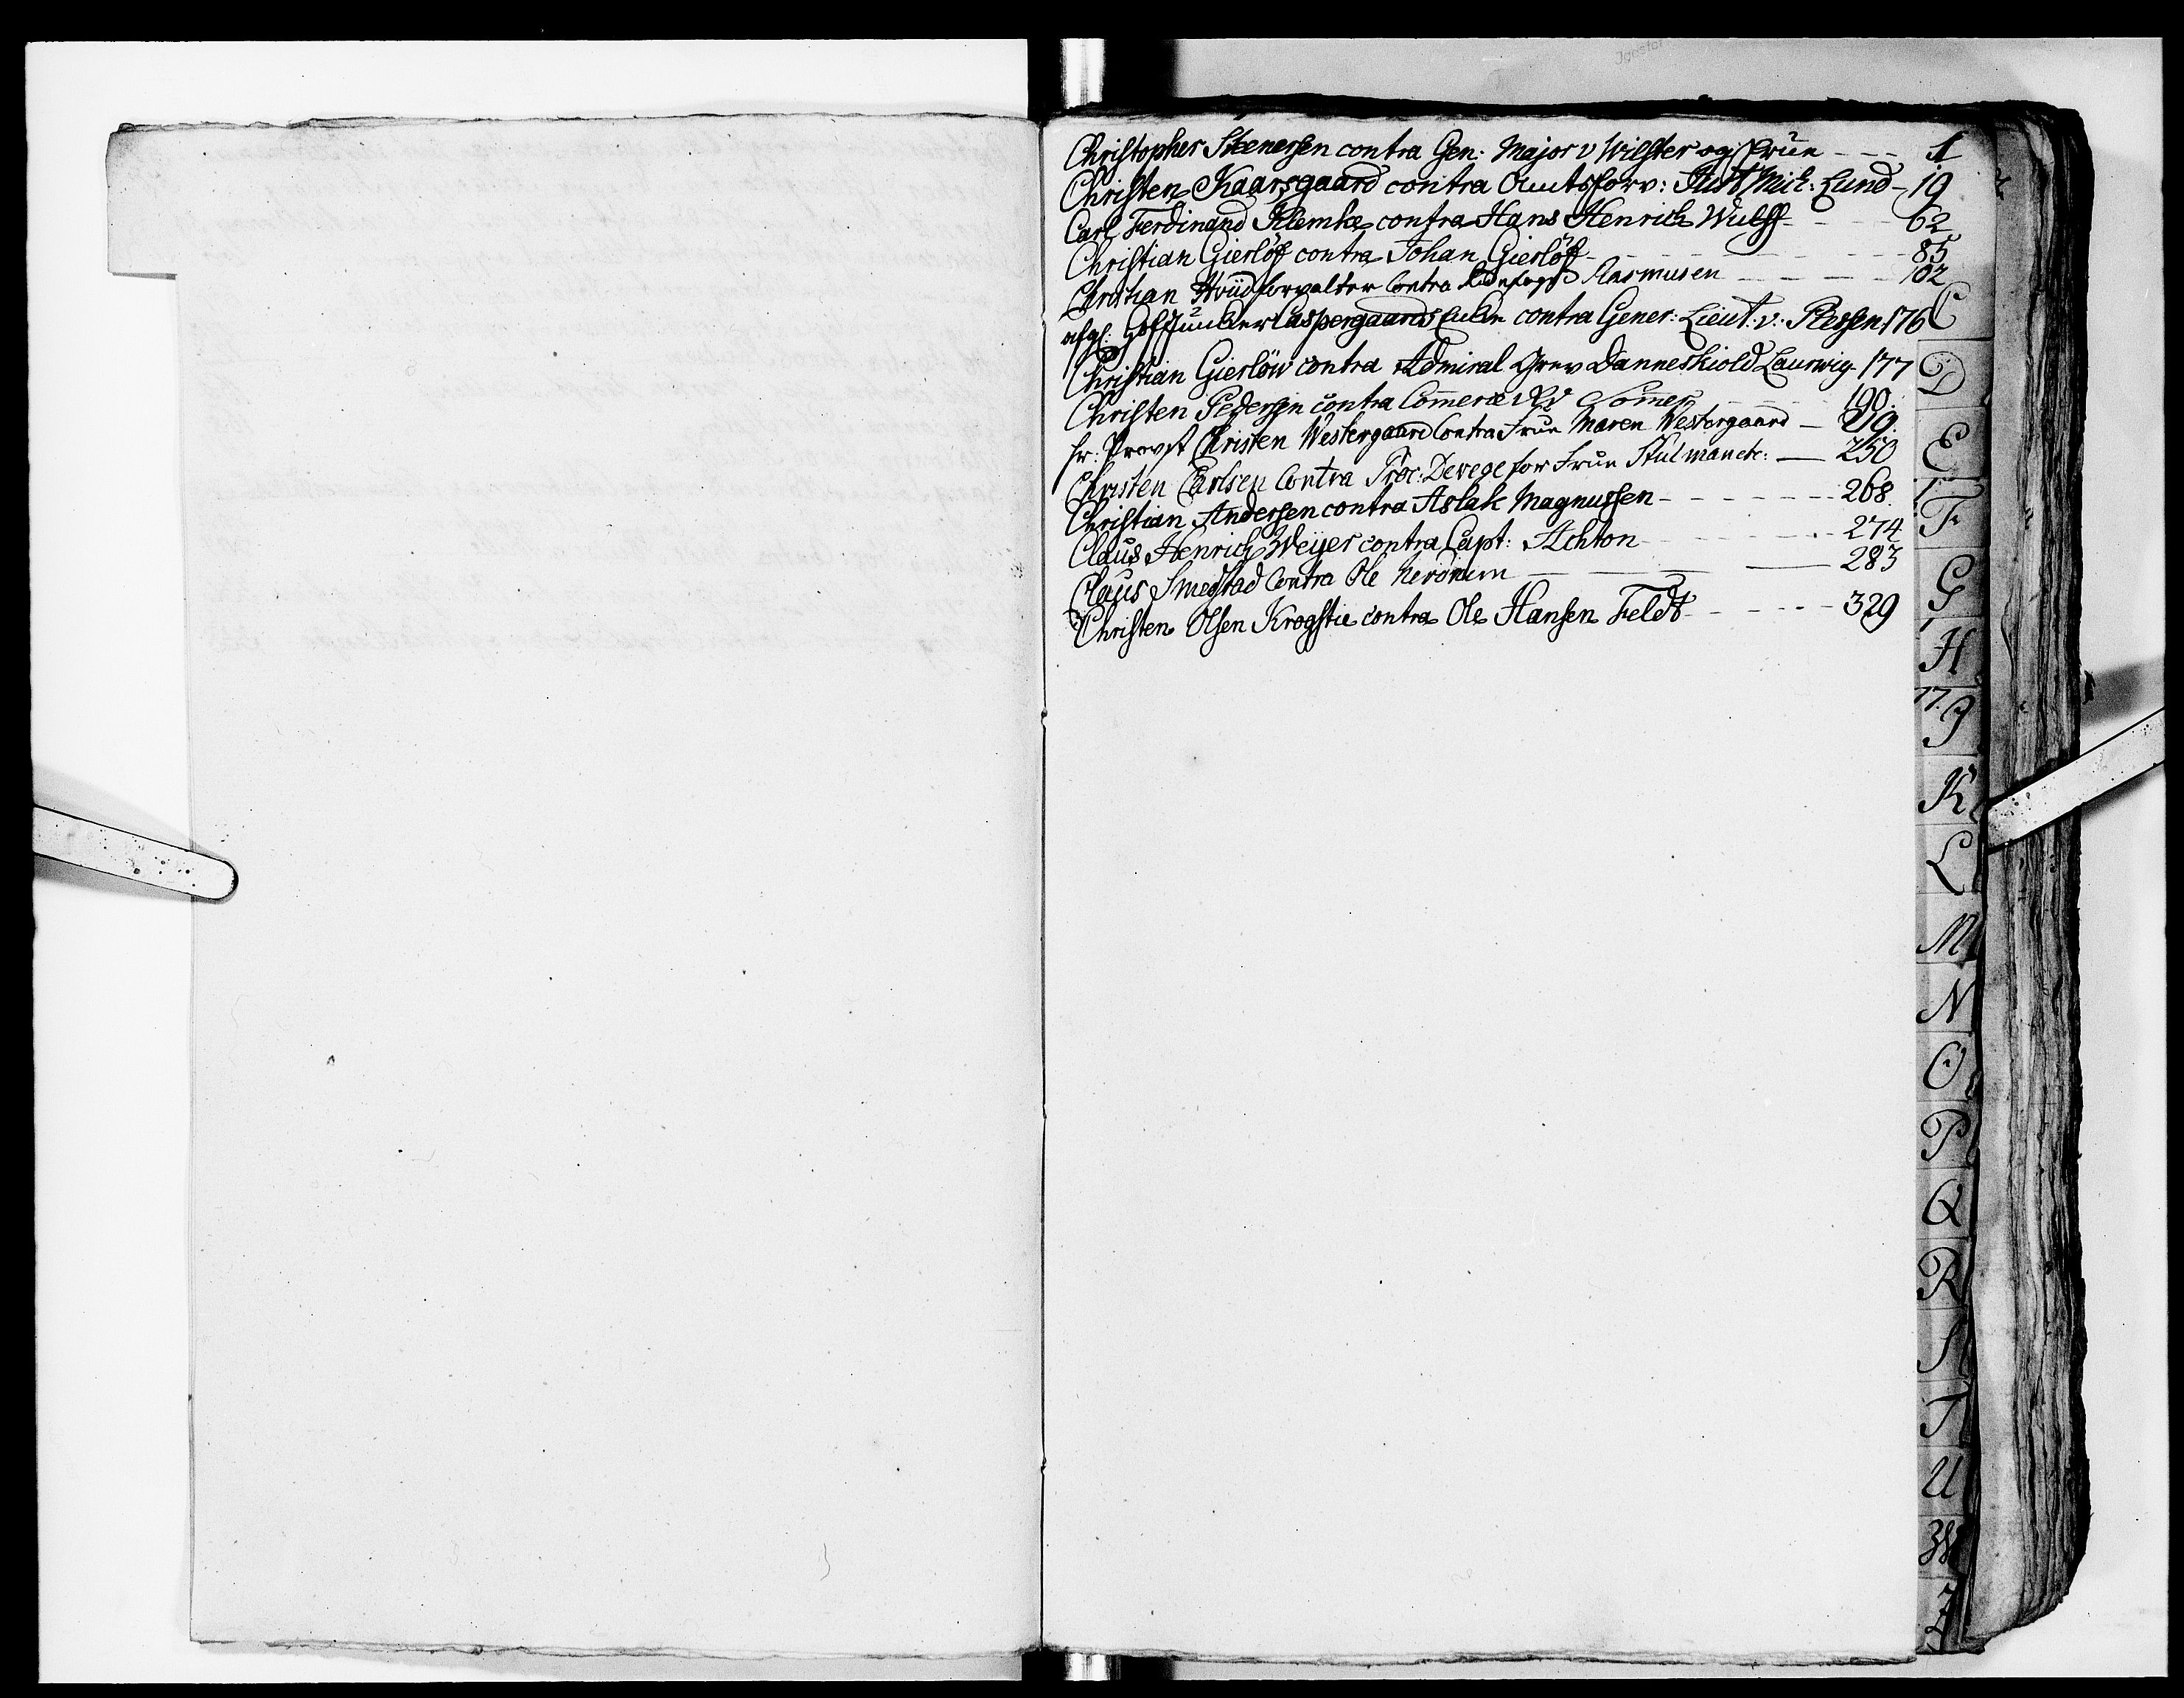 Christopher Steenersen contra Gen: Major v Wilster og Frue - - - 1
Christen Kaarsgaard contra Amtsforv: Just Mich: Lund - 19
Carl Ferdinand Klemke contra Hans Henrich Wulff - - 62
Christian Gierlöf contra Johan Gierlöf - - - 85
Christian Hviid forvalter Contra Rasmusen - - - 102
afgl: Hoff Junker Caspergaards Enke contra Gener: Lieut: v: Plessen 176
Christian Gierlöw contra Admiral Grev Danneskiold Laurwig - 177
Christen Pedersen contra - - - 190.
hr: Provst Christen Westergaard Contra Frue Maren Westergaard - 219.
Christen Carlsen Contra Proc: Devege for Frue Stulmanch: - 250
Christian Andersen contra Aslak Magnussen - - - 268.
Claus Henrich Weyer contra Capt: Achton - - - 274
Claus Smedstad Contra Ole - - - 283
Christen Olsen Krogstie contra Ole Hansen Feldt - - - 329
C
D
E
F
G
H
I
K
L
M
N
O
P
Q
R
S
T
U
Z